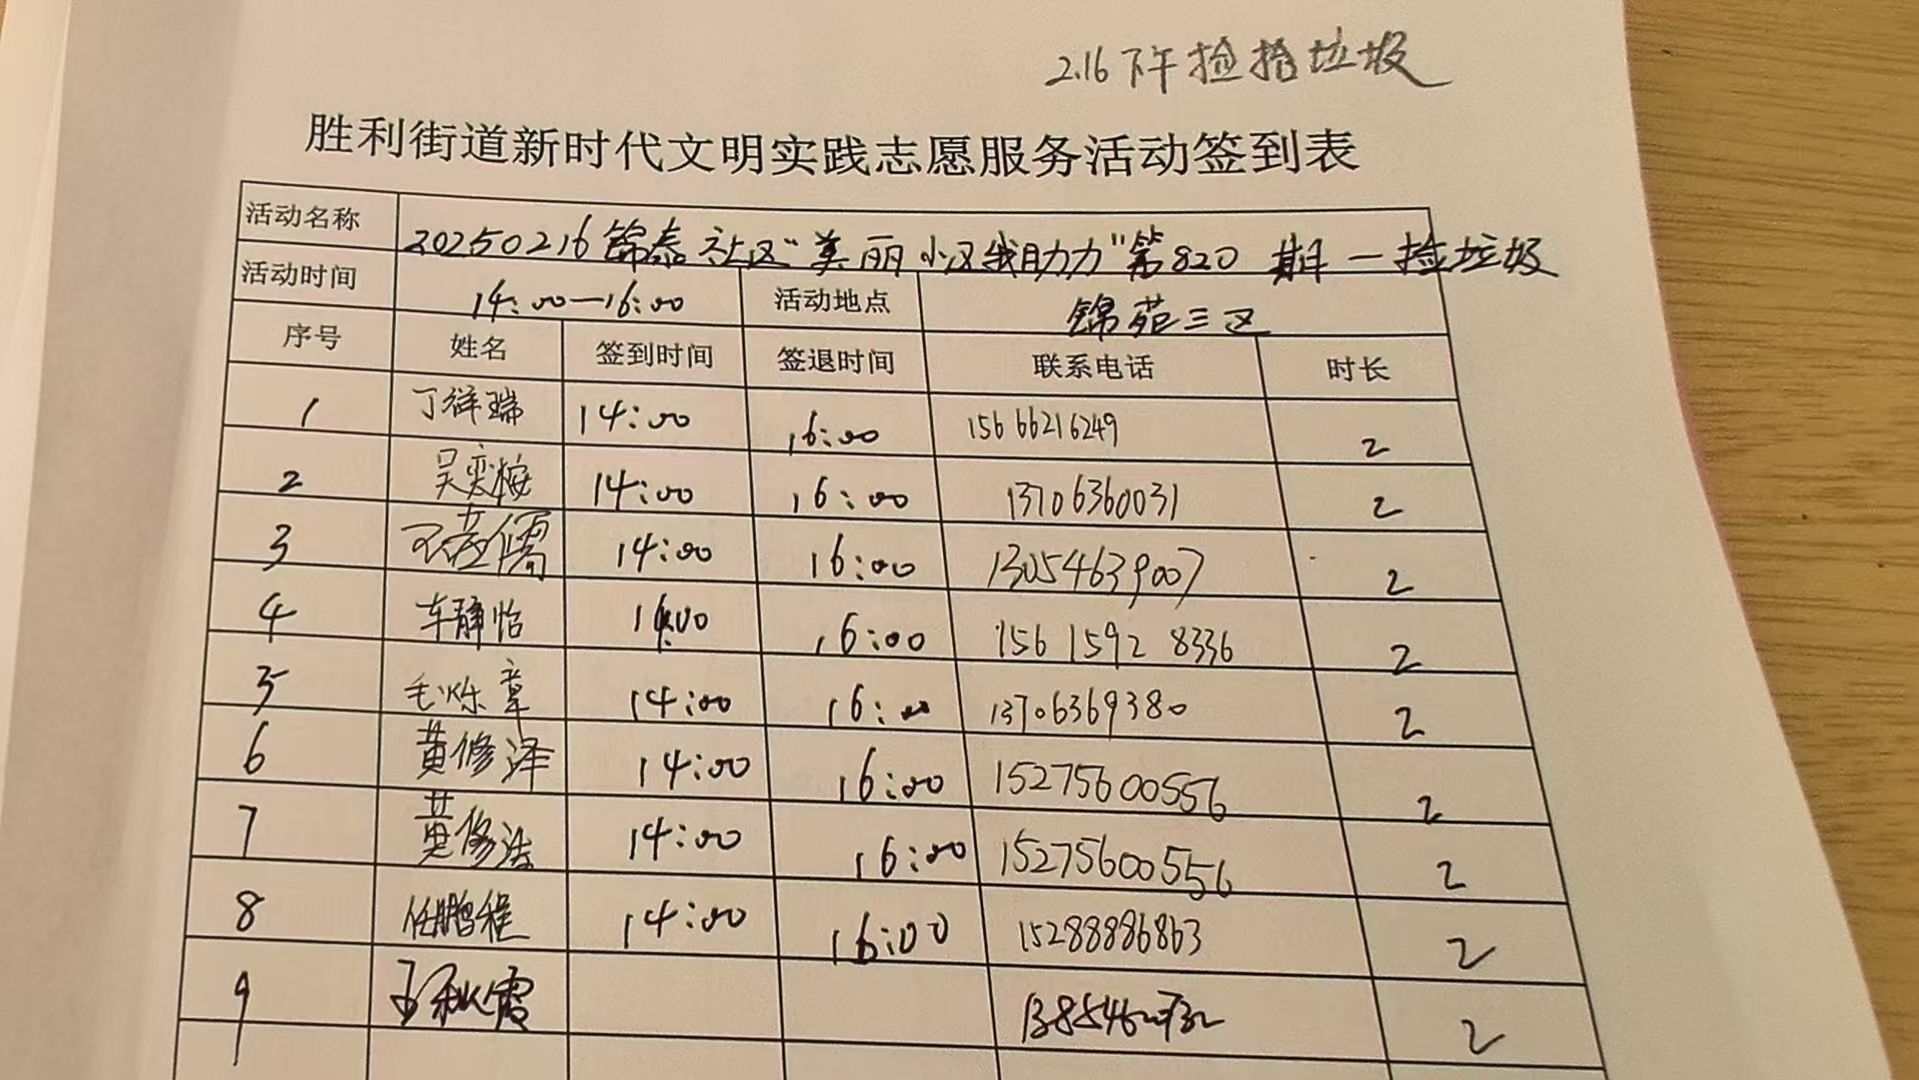 2.16下午捡拾垃圾
胜利街道新时代文明实践志愿服务活动签到表
活动名称 20250216锦泰社区“美丽小区我助力”第820期—捡垃圾
活动时间 14:00—16:00 活动地点 锦苑三区
序号 姓名 签到时间 签退时间 联系电话 时长
1 丁祥瑞 14:00 16:00 15666216249 2
2 吴奕桉 14:00 16:00 13706360031 2
3 14:00 16:00 13054639007 2
4 车静怡 14:00 16:00 156 1592 8336 2
5 毛烁章 14:00 16:00 13706369380 2
6 黄修泽 14:00 16:00 15275600556 2
7 黄修浩 14:00 16:00 15275600556 2
8 任鹏程 14:00 16:00 15288886863 2
9 王秋霞 2